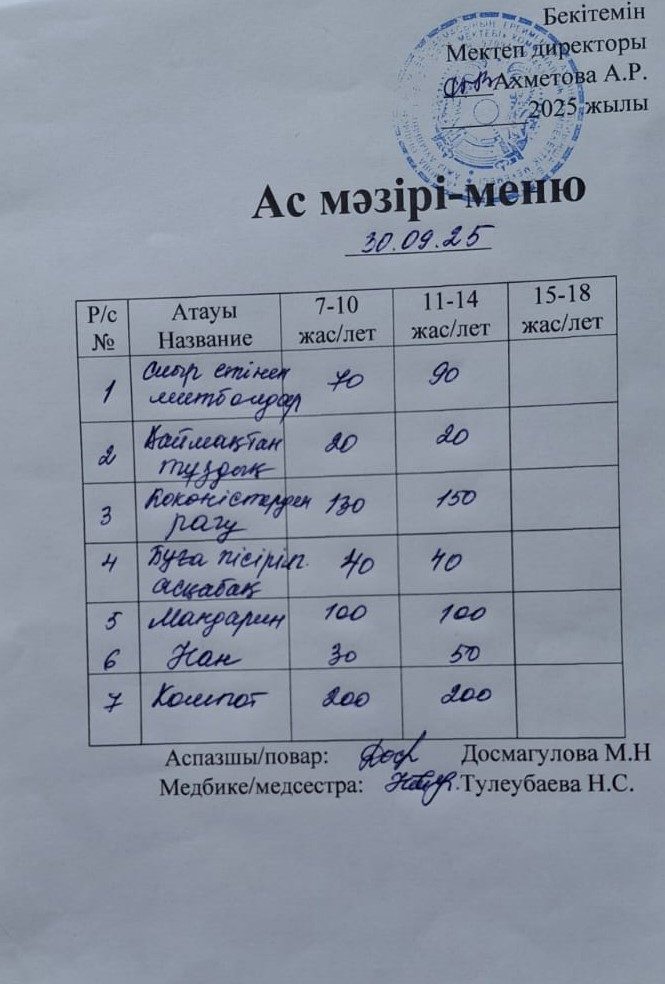 Бекітемін
Мектеп директоры
Ахметова А.Р.
2025 жылы
Ас мәзірі-меню
30.09.25
Р/с № Атауы Название 7-10 жас/лет 11-14 жас/лет 15-18 жас/лет
1 Сиыр етінен митболдар 70 90
2 Қаймақтан тұздық 20 20
3 Көкөністерден рагу 130 150
4 Буға пісіріл. асқабақ 40 40
5 Мандарин 100 100
6 Нан 30 50
7 Компот 200 200
Аспазшы/повар: Досмагулова М.Н
Медбике/медсестра: Тулеубаева Н.С.